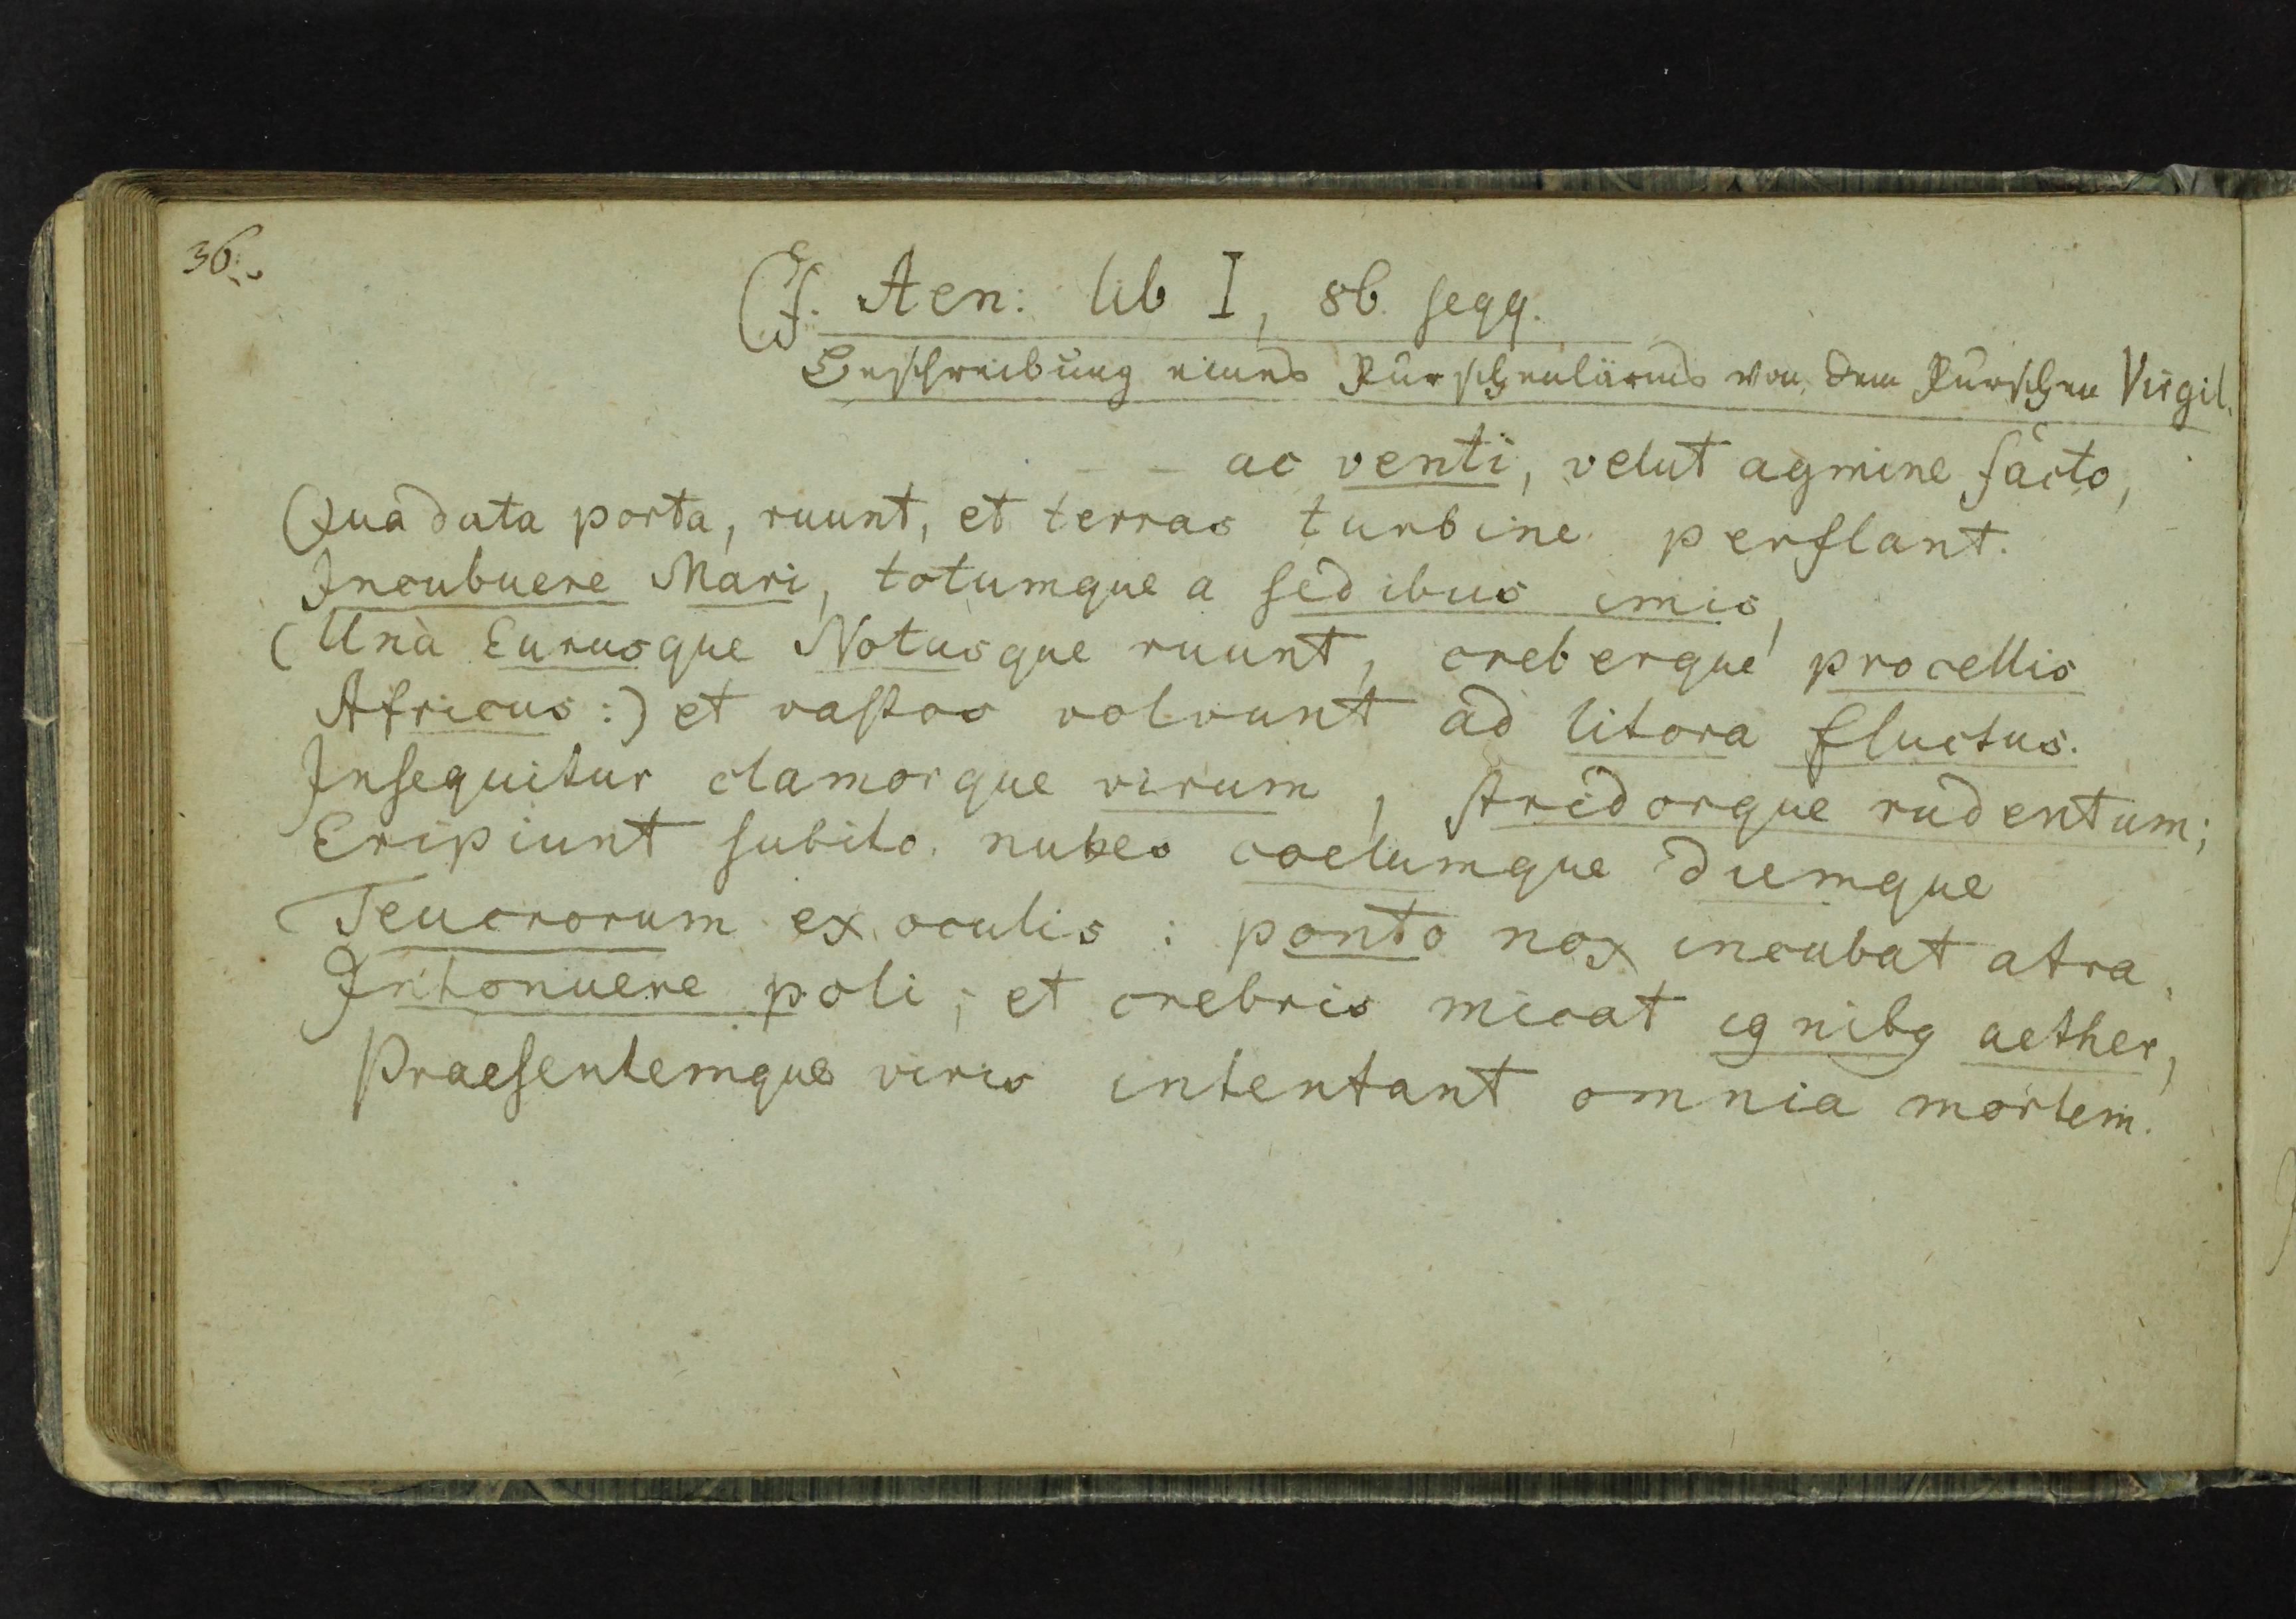 36.
Cf. Aen: lib I, 86 seqq.
Beschreibung eines Purschenlärms von dem Purschen Virgil.
– – ac venti, velut agmine facto,
Qua data porta, ruunt, et terras turbine perflant.
Incubuere Mari, totumque a sedibus imis,
(Unà Eurusque Notusque ruunt, creberque procellis
Africus :) et vastos volvunt ad litora fluctus.
Insequitur clamorque virum, stridorque rudentum;
Eripiunt subito nubes coelumque diemque
Teucrorum ex oculis : ponto nox incubat atra.
Intonuere poli; et crebris micat ignibq aether,
Praesentemque viris intentant omnia mortem.